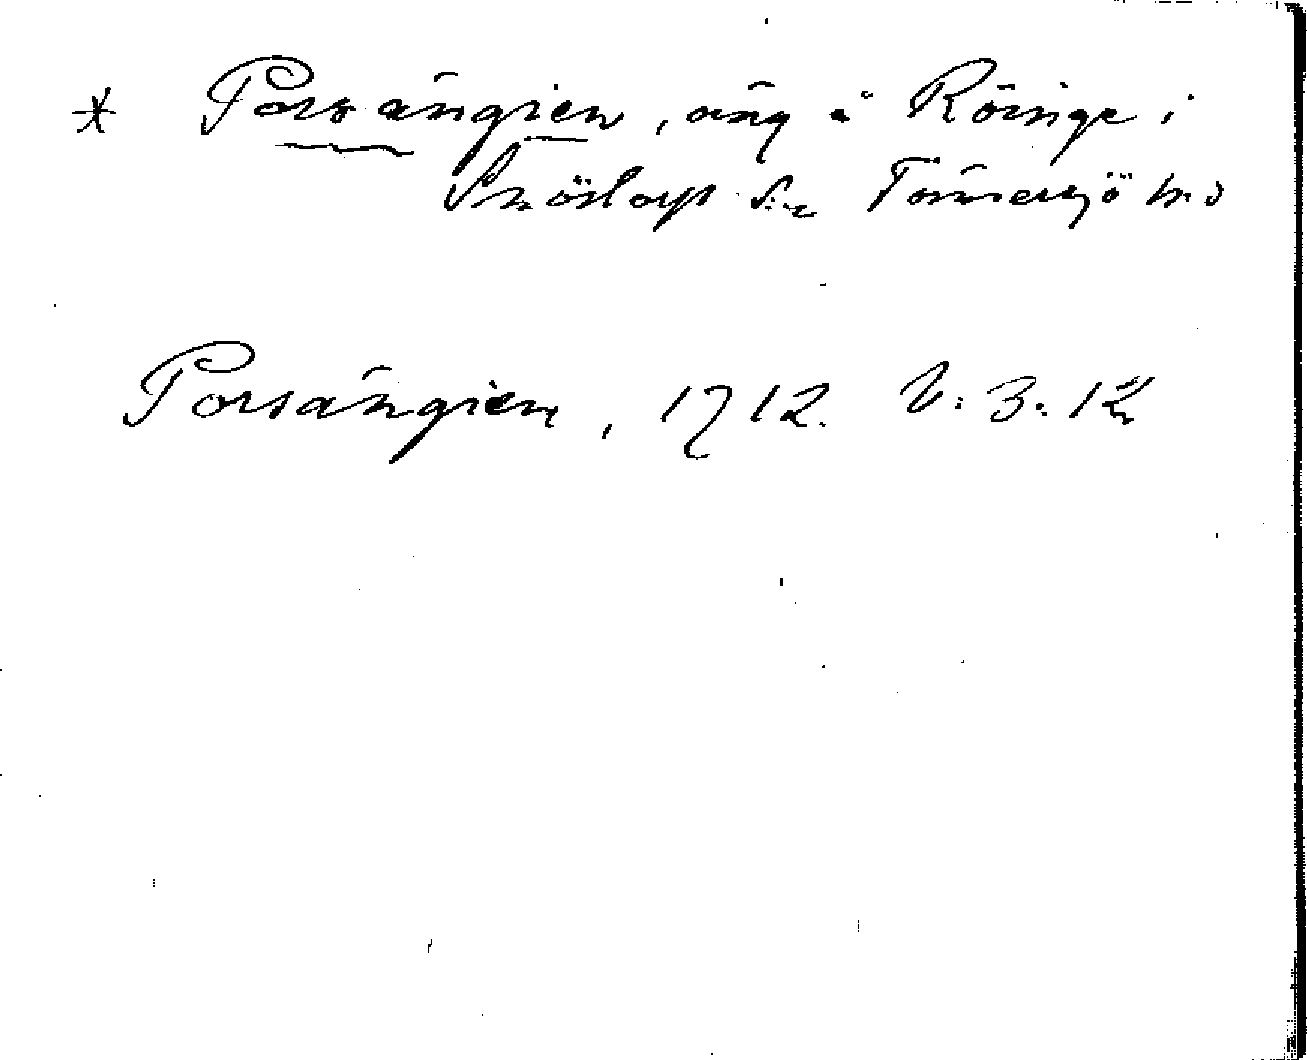 * Porsängien, äng å Röinge i
Snöstorps sn Tönnersjö hd
Porsängien, 1712. V: 3: 12